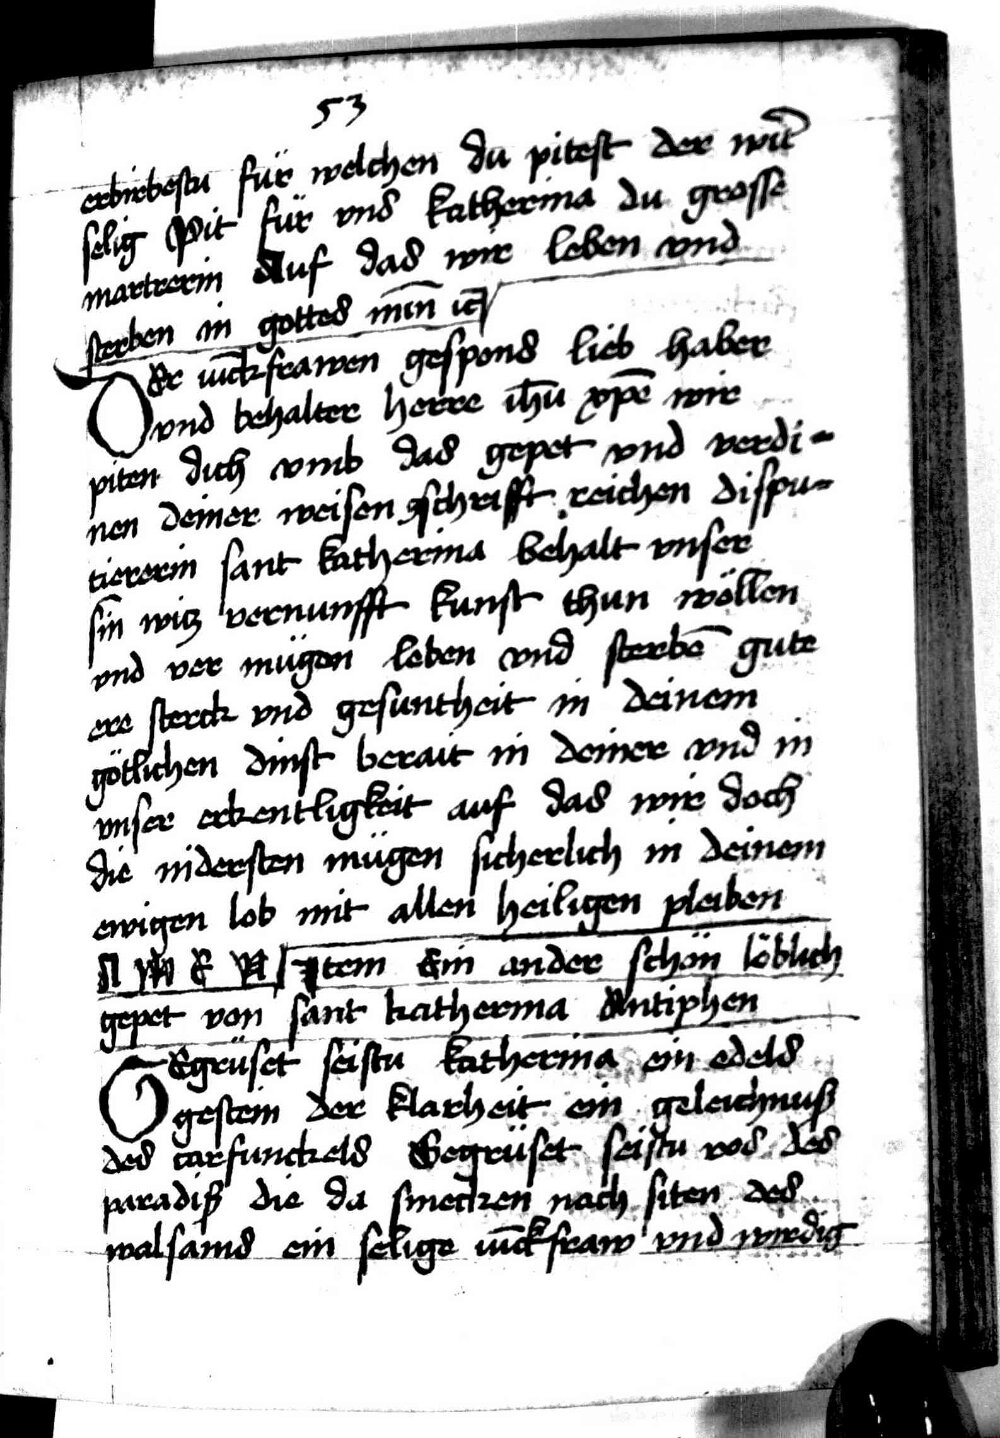 53
erbirbestu für welchen du pitest der wirt
selig Pit für vns katherina du grosse
martrerin Auf das wir leben vnd
sterben in gottes minn
Er iūckfrawen gespons lieb haber
vnd behalter herre ih̄u xp̄e wir
piten dich vmb das gepet vnd verdi-
nen deiner weisen schrifft reichen dispu-
tiererin sant katherina behalt vnser
sin̄ witz vernunfft kunst thun wöllen
vnd ver mügen leben vnd sterbē gute
ere sterck vnd gesuntheit in deinem
götlichen dinst berait in deiner vnd in
vnser erkentligkeit auf das wir doch
die nidersten mügen sicherlich in deinem
ewigen lob mit allen heiligen pleiben
A M E N Item Ein ander schön löblich
gepet von sant katherina Antiphen
GEgrüset seistu katherina ein edels
gestein der klarheit ein geleichnuß
des carfunckels Gegrüset seistu ros des
paradiß die da smecken nach siten des
walsams ein selige iūckfraw vnd wirdig